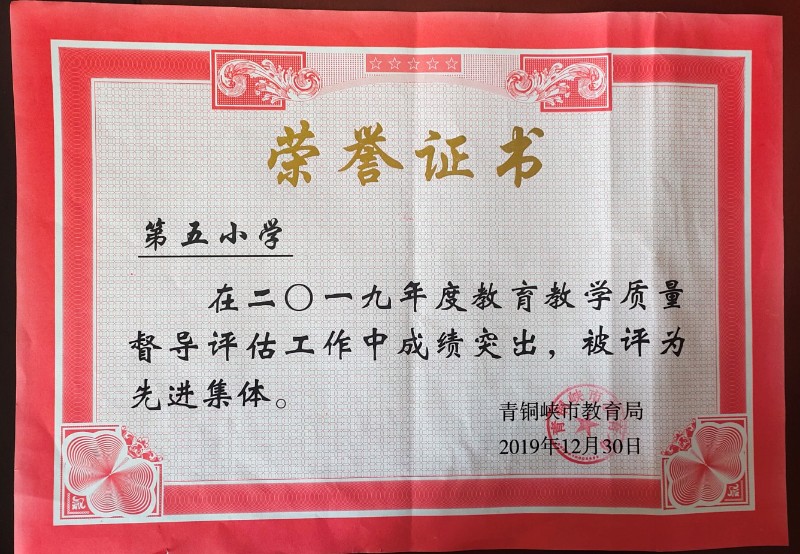 荣誉证书
第五小学
在二〇一九年度教育教学质量
督导评估工作中成绩突出，被评为
先进集体。
青铜峡市教育局
2019年12月30日